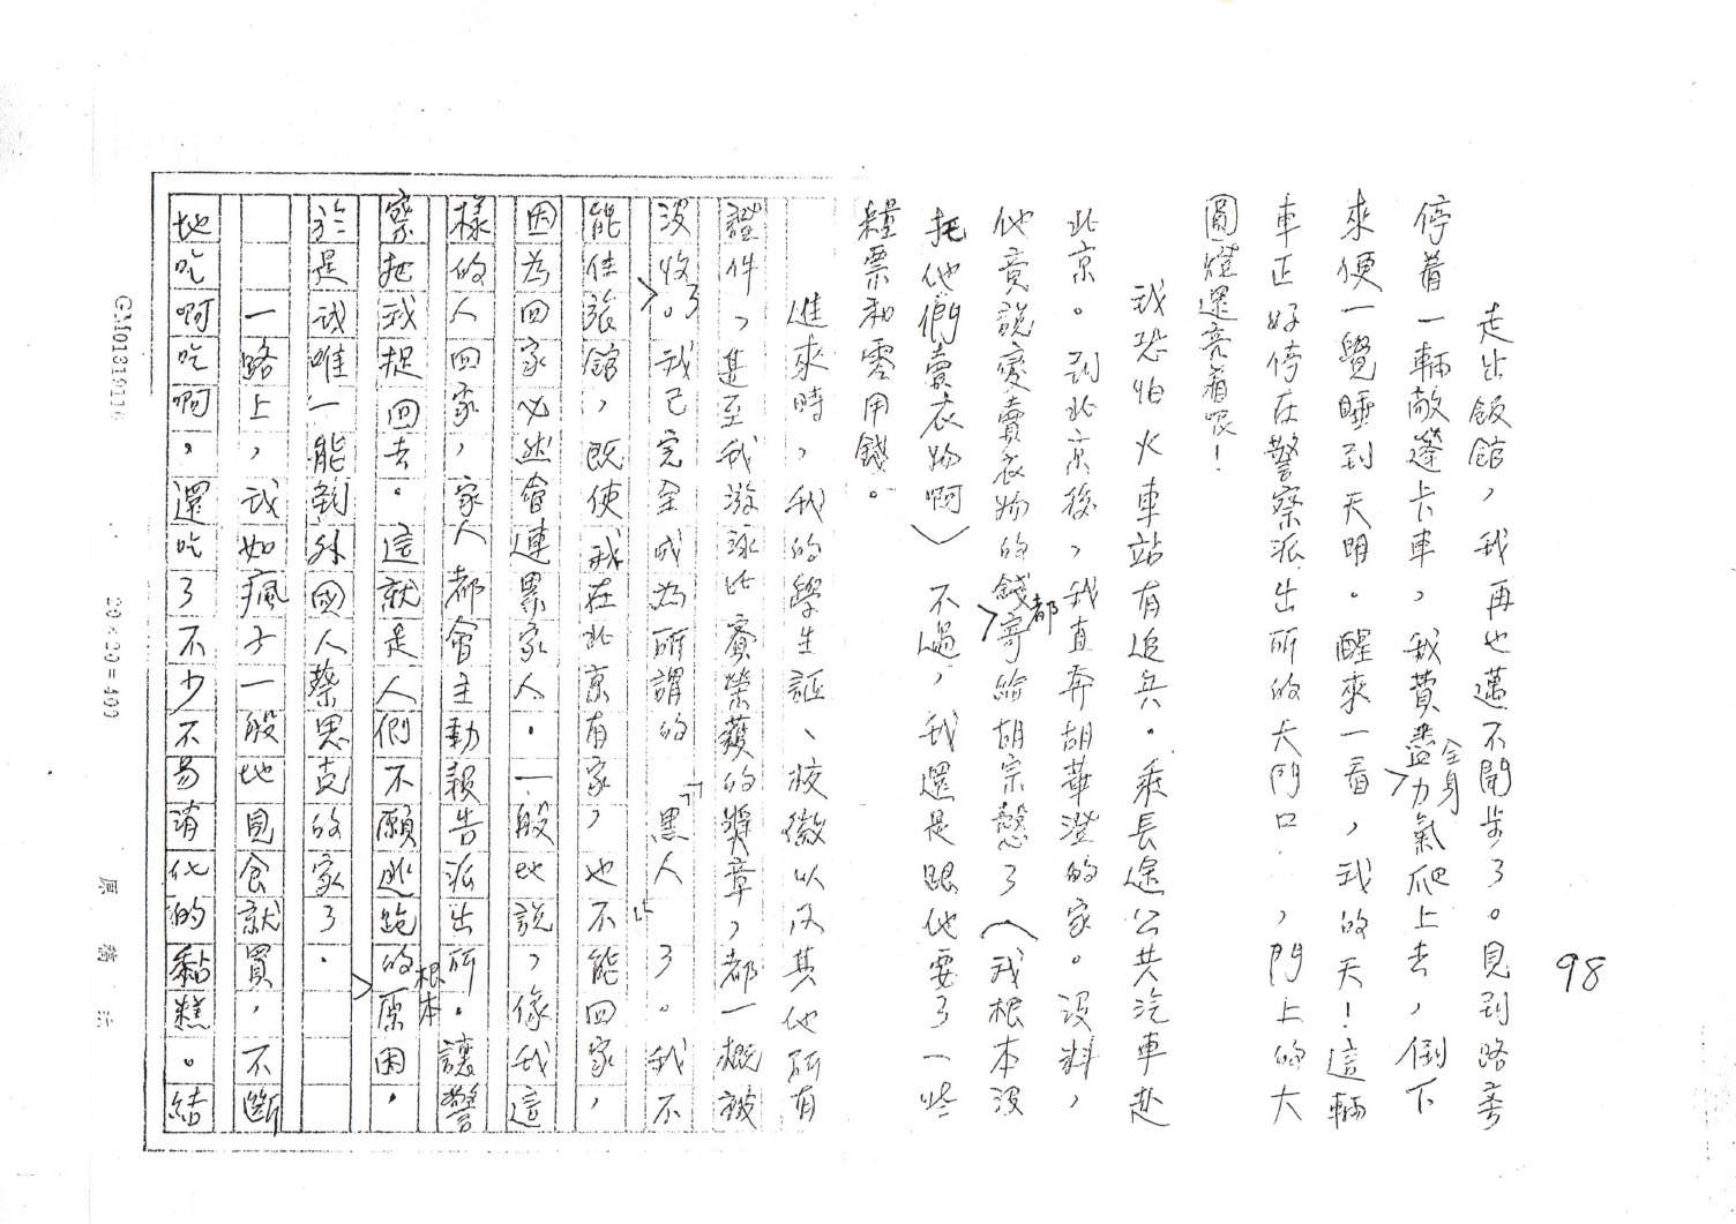 98
走出飯館，我再也邁不開步了。見到路旁
停着一輛敞蓬卡車，我費盡全身力氣爬上去，倒下
來便一覺睡到天明。醒來一看，我的天！這輛
車正好停在警察派出所的大門口，門上的大
圓燈還亮着哏！
我恐怕火車站有追兵。乘長途公共汽車赴
北京。到北京後，我直奔胡華澄的家。沒料，
他竟說變賣衣物的錢都寄給胡宗慤了（我根本沒
托他們賣衣物啊）不過，我還是跟他要了一些
糧票和零用錢。
進來時，我的學生証、校徽以及其他所有
證件，甚至我游泳比賽榮獲的獎章，都一概被
沒收了。我已完全成為所謂的「黑人」了。我不
能住旅館，既使我在北京有家，也不能回家，
因為回家必然會連累家人。一般地說，像我這
樣的人回家，家人都會主動報告派出所。讓警
察把我捉回去。這就是人們不願逃跑的根本原因，
於是我唯一能到外國人蔡思克的家了。
一路上，我如瘋子一般地見食就買，不斷
地吃啊吃啊，還吃了不少不易消化的黏糕。結
GM01319116
20×20=400
原稿